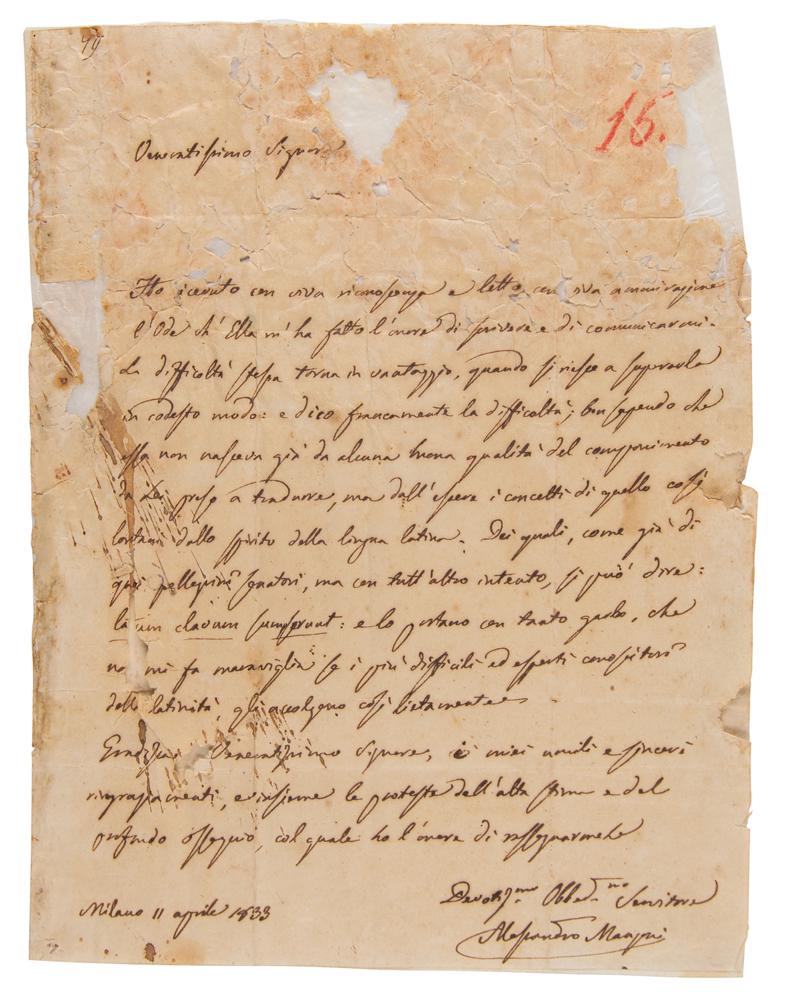 49
15.
Veneratissimo Signore
Ho ricevuto con viva riconoscenza e letto con viva ammirazione
l'Ode ch'Ella m'ha fatto l'onore di scrivere e di comunicarmi.
La difficoltà stessa torna in vantaggio, quando si riesce a superarla
in codesto modo: e dico francamente la difficoltà; ben sapendo che
essa non nasceva già da alcuna buona qualità del componimento
da Lei preso a tradurre, ma dall'essere i concetti di quello così
lontani dallo spirito della lingua latina. Dei quali, come già di
quei pellegrini senatori, ma con tutt'altro intento, si può dire:
latum clavum sumpserunt: e lo portano con tanto garbo, che
non mi fa maraviglia se i più difficili ed esperti conoscitori
della latinità, gli accolgono così lietamente.
Gradisca Veneratissimo Signore, i miei umili e sinceri
ringraziamenti, e insieme le proteste dell'alta stima e del
profondo ossequio, col quale ho l'onore di rassegnarmele
Devotiss.mo Obbed.mo Servitore
Milano 11 aprile 1833
Alessandro Manzoni